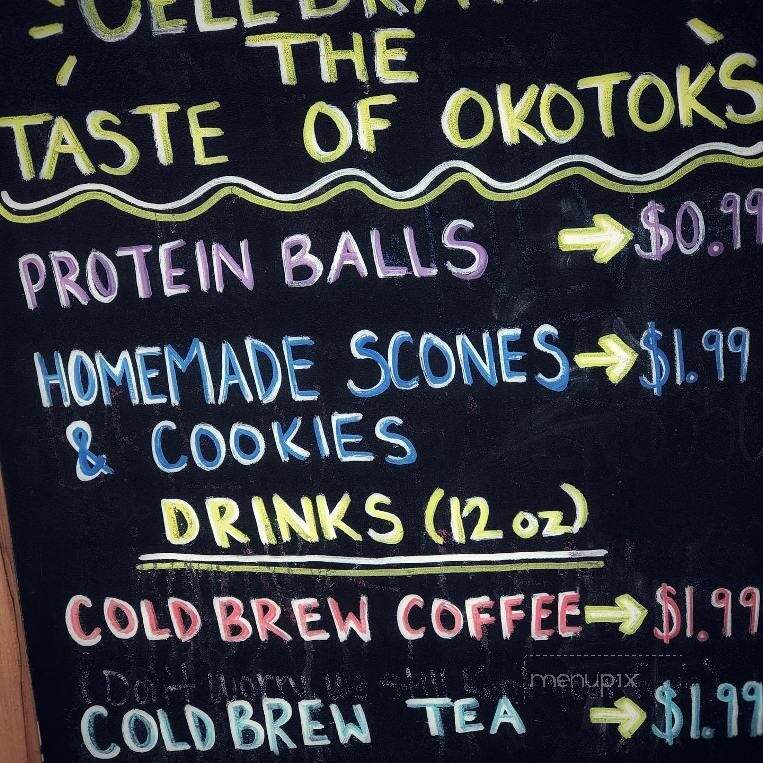 THE
TASTE OF OKOTOKS
PROTEIN BALLS → $0.99
HOMEMADE SCONES → $1.99
& COOKIES
DRINKS (12 oz)
COLD BREW COFFEE → $1.99
(Don't worry we still
menupix
COLD BREW TEA → $1.99